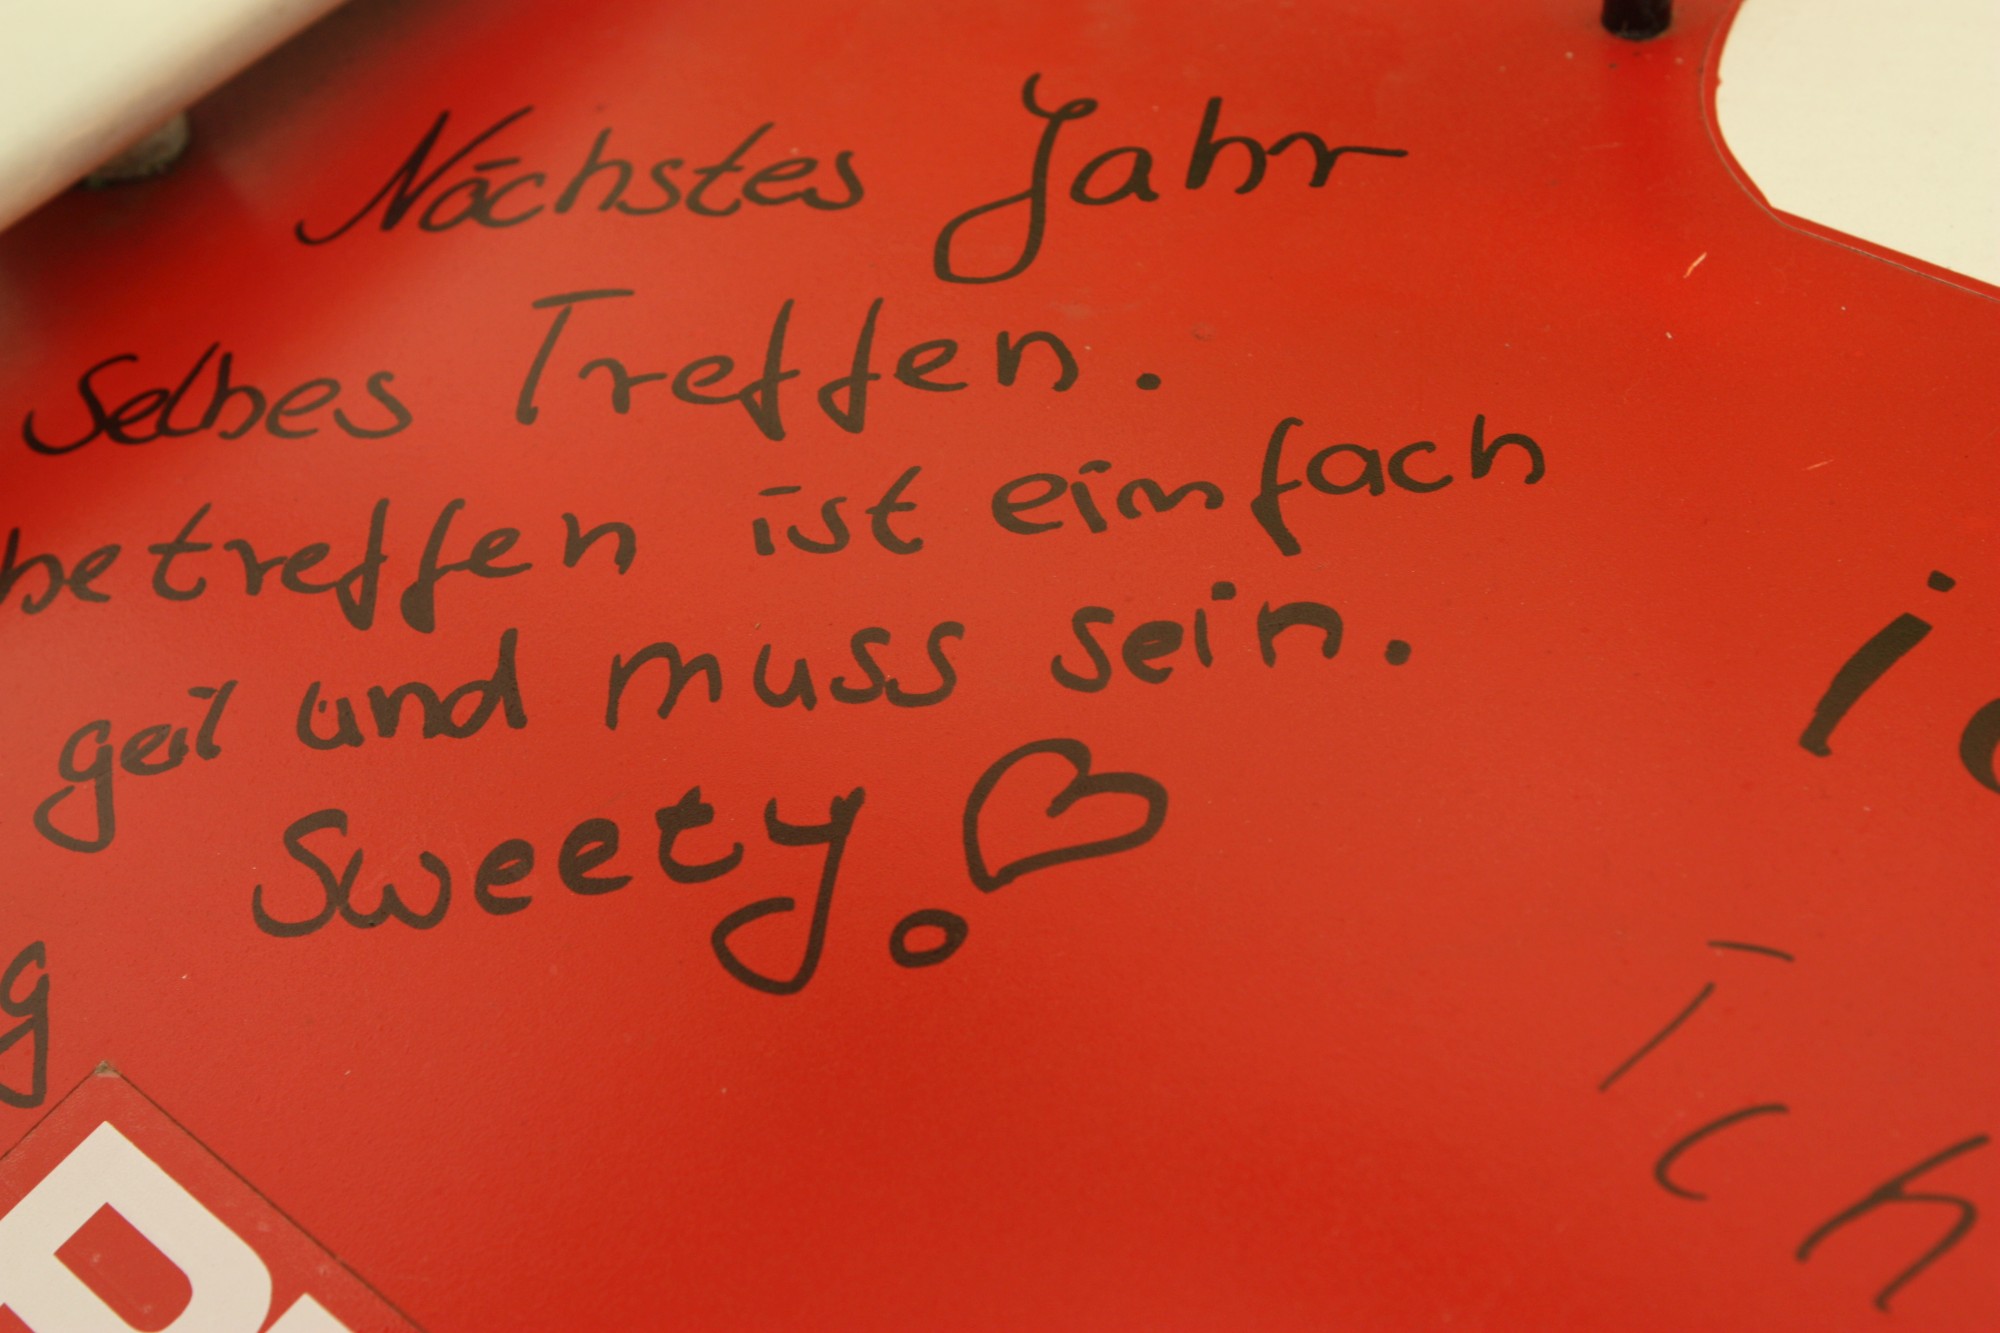 Nächstes Jahr
Selbes Treffen.
betreffen ist einfach
geil und muss sein.
Sweety.
g
i
Ich